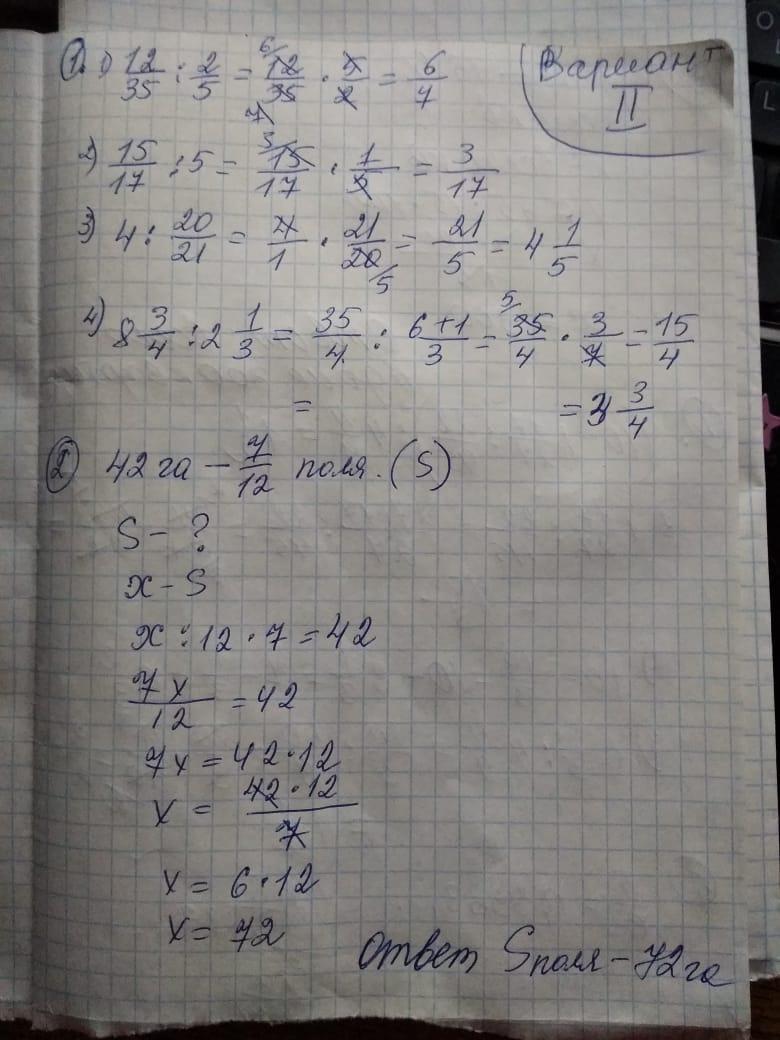 Вариант
II
1. 1) 12/35 : 2/5 = 12/35 · 5/2 = 6/7
2) 15/17 : 5 = 15/17 · 1/5 = 3/17
3) 4 : 20/21 = 4/1 · 21/20 = 21/5 = 4 1/5
4) 8 3/4 : 2 1/3 = 35/4 : 6+1/3 = 35/4 · 3/7 = 15/4
= = 3 3/4
2 42 га – 7/12 поля. (S)
S – ?
x – S
x : 12 · 7 = 42
7x/12 = 42
7x = 42·12
x = 42·12/7
x = 6·12
x = 72
Ответ Sполя – 72 га